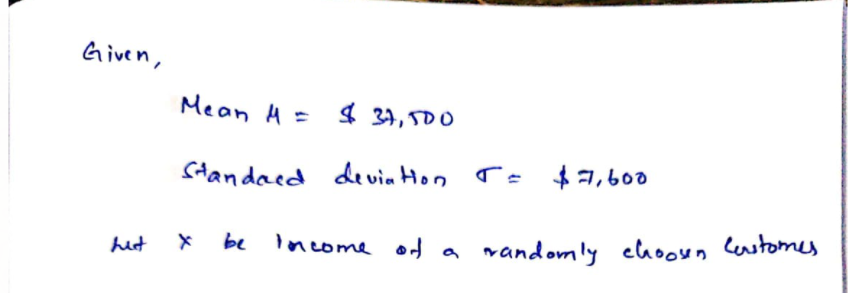 Given,
Mean μ = $ 37,500
Standard deviation σ = $ 7,600
Let X be Income of a randomly choosen Customer